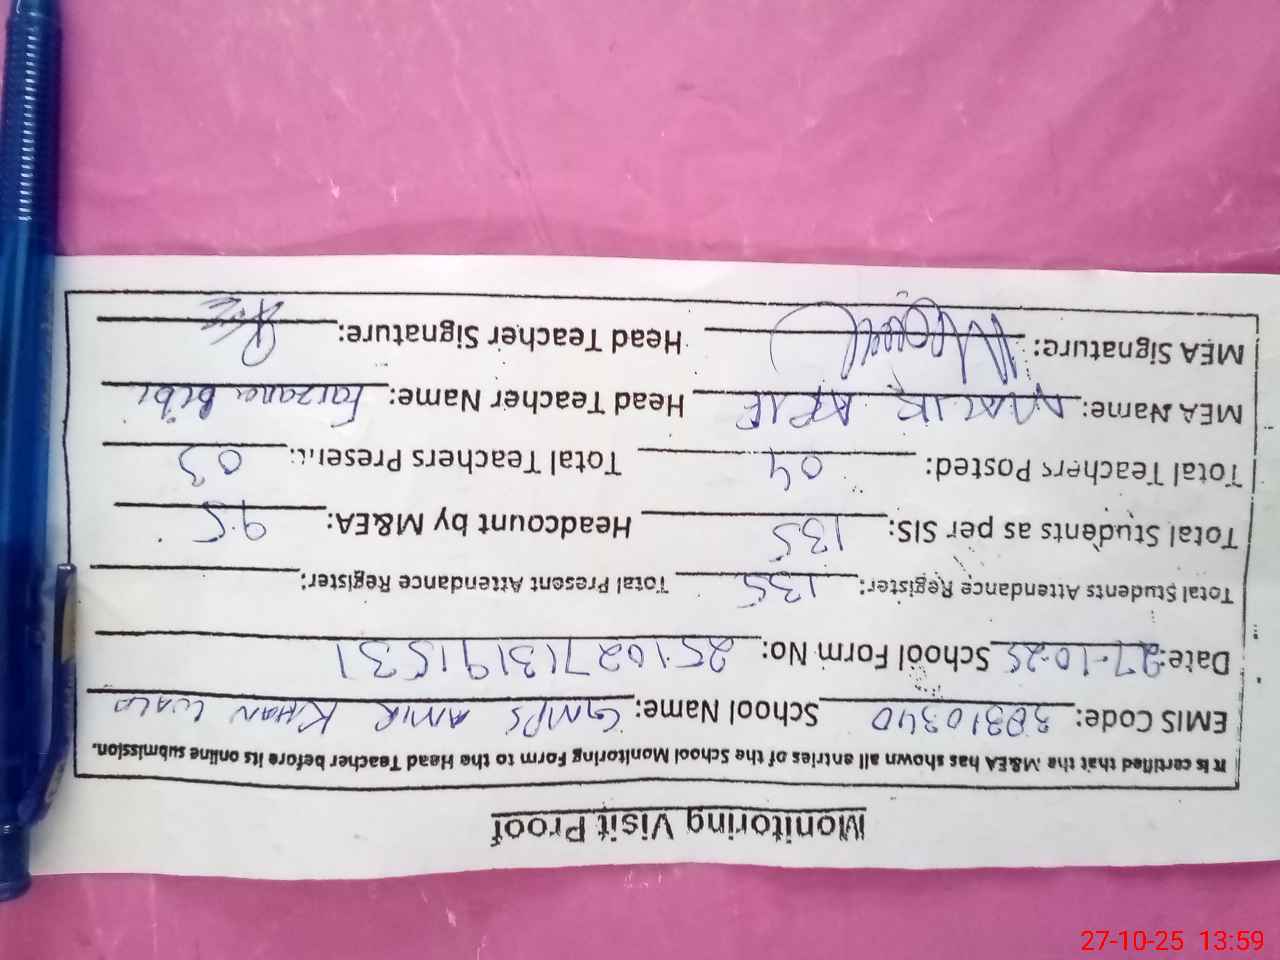 Monitoring Visit Proof
It is certified that the M&EA has shown all entries of the School Monitoring Form to the Head Teacher before its online submission.
EMIS Code: 38310340 School Name: GMPS AMIR KHAN WALA
Date: 27-10-25 School Form No: 25102713191531
Total Students Attendance Register: 135 Total Present Attendance Register:
Total Students as per SIS: 135 Headcount by M&EA: 95
Total Teachers Posted: 04 Total Teachers Present: 03
MEA Name: MALIK Head Teacher Name: Farzana Bibi
MEA Signature: Head Teacher Signature:
27-10-25 13:59